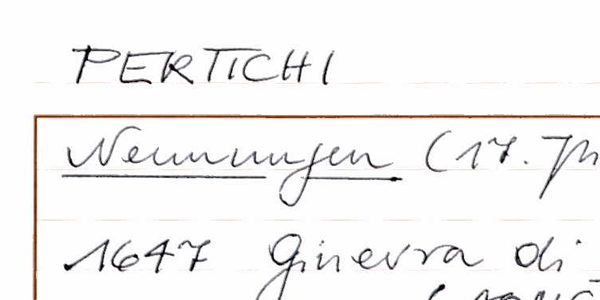 PERTICHI
Nennungen (17. Jh
1647 Ginevra di